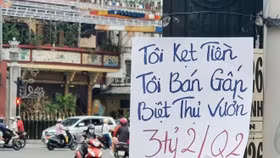 Tôi Kẹt Tiền
Tôi Bán Gấp
Biệt Thự Vườn
3tỷ2/Q2